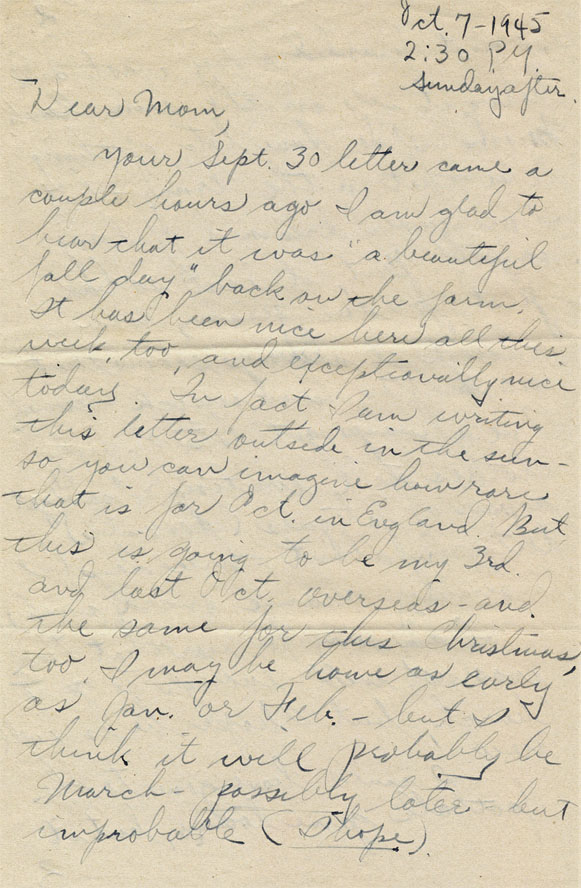 Oct. 7-1945
2:30 P.M.
Sunday after.
Dear Mom,
Your Sept. 30 letter came a
couple hours ago. I am glad to
hear that it was "a beautiful
fall day" back on the farm.
It has been nice here all this
week, too, and exceptionally nice
today. In fact I am writing
this letter outside in the sun-
so you can imagine how rare
that is for Oct. in England. But
this is going to be my 3rd
and last Oct. overseas - and
the same for this Christmas,
too. I may be home as early
as Jan. or Feb. - but I
think it will probably be
March - possibly later - but
improbable (I hope).